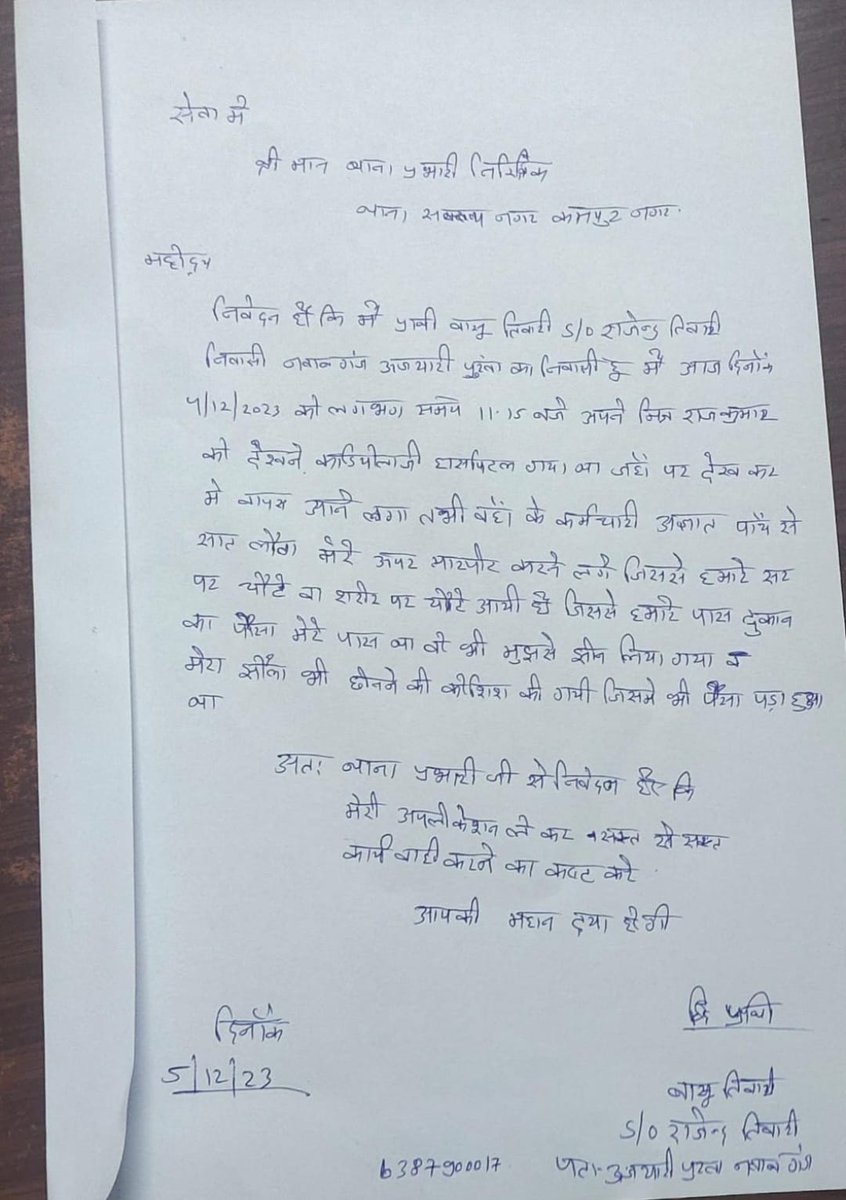 सेवा में
श्री मान थाना प्रभारी निरिक्षक
थाना स्वरूप नगर कानपुर नगर.
महोदय
निवेदन है कि मैं प्रार्थी वासू तिवारी S/O राजेन्द्र तिवारी
निवासी नवाबगंज उजयारी पुरवा का निवासी हूं मैं आज दिनाँक
4/12/2023 को लगभग समय 11.15 बजे अपने मित्र राजकुमार
को देखने कार्डियोलाजी हास्पिटल गया था जहाँ पर देख कर
मे वापस आने लगा तभी वहाँ के कर्मचारी अज्ञात पाँच से
सात लोग मेरे ऊपर मारपीट करने लगे जिससे हमारे सर
पर चोटे वा शरीर पर चोटे आयी है जिससे हमारे पास दुकान
का पैसा मेरे पास था वो भी मुझसे छीन लिया गया व
मेरा झोला भी छीनने की कोशिश की गयी जिसमे भी पैसा पड़ा हुआ
था
अतः थाना प्रभारी जी से निवेदन है कि
मेरी अपलीकेशन ले कर सख्त से सख्त
कार्यवाही करने का कष्ट करे
आपकी महान दया होगी
दिनाँक
5/12/23
प्रार्थी
वासू तिवारी
S/O राजेन्द्र तिवारी
6387900017 पता- उजयारी पुरवा नवाब गंज